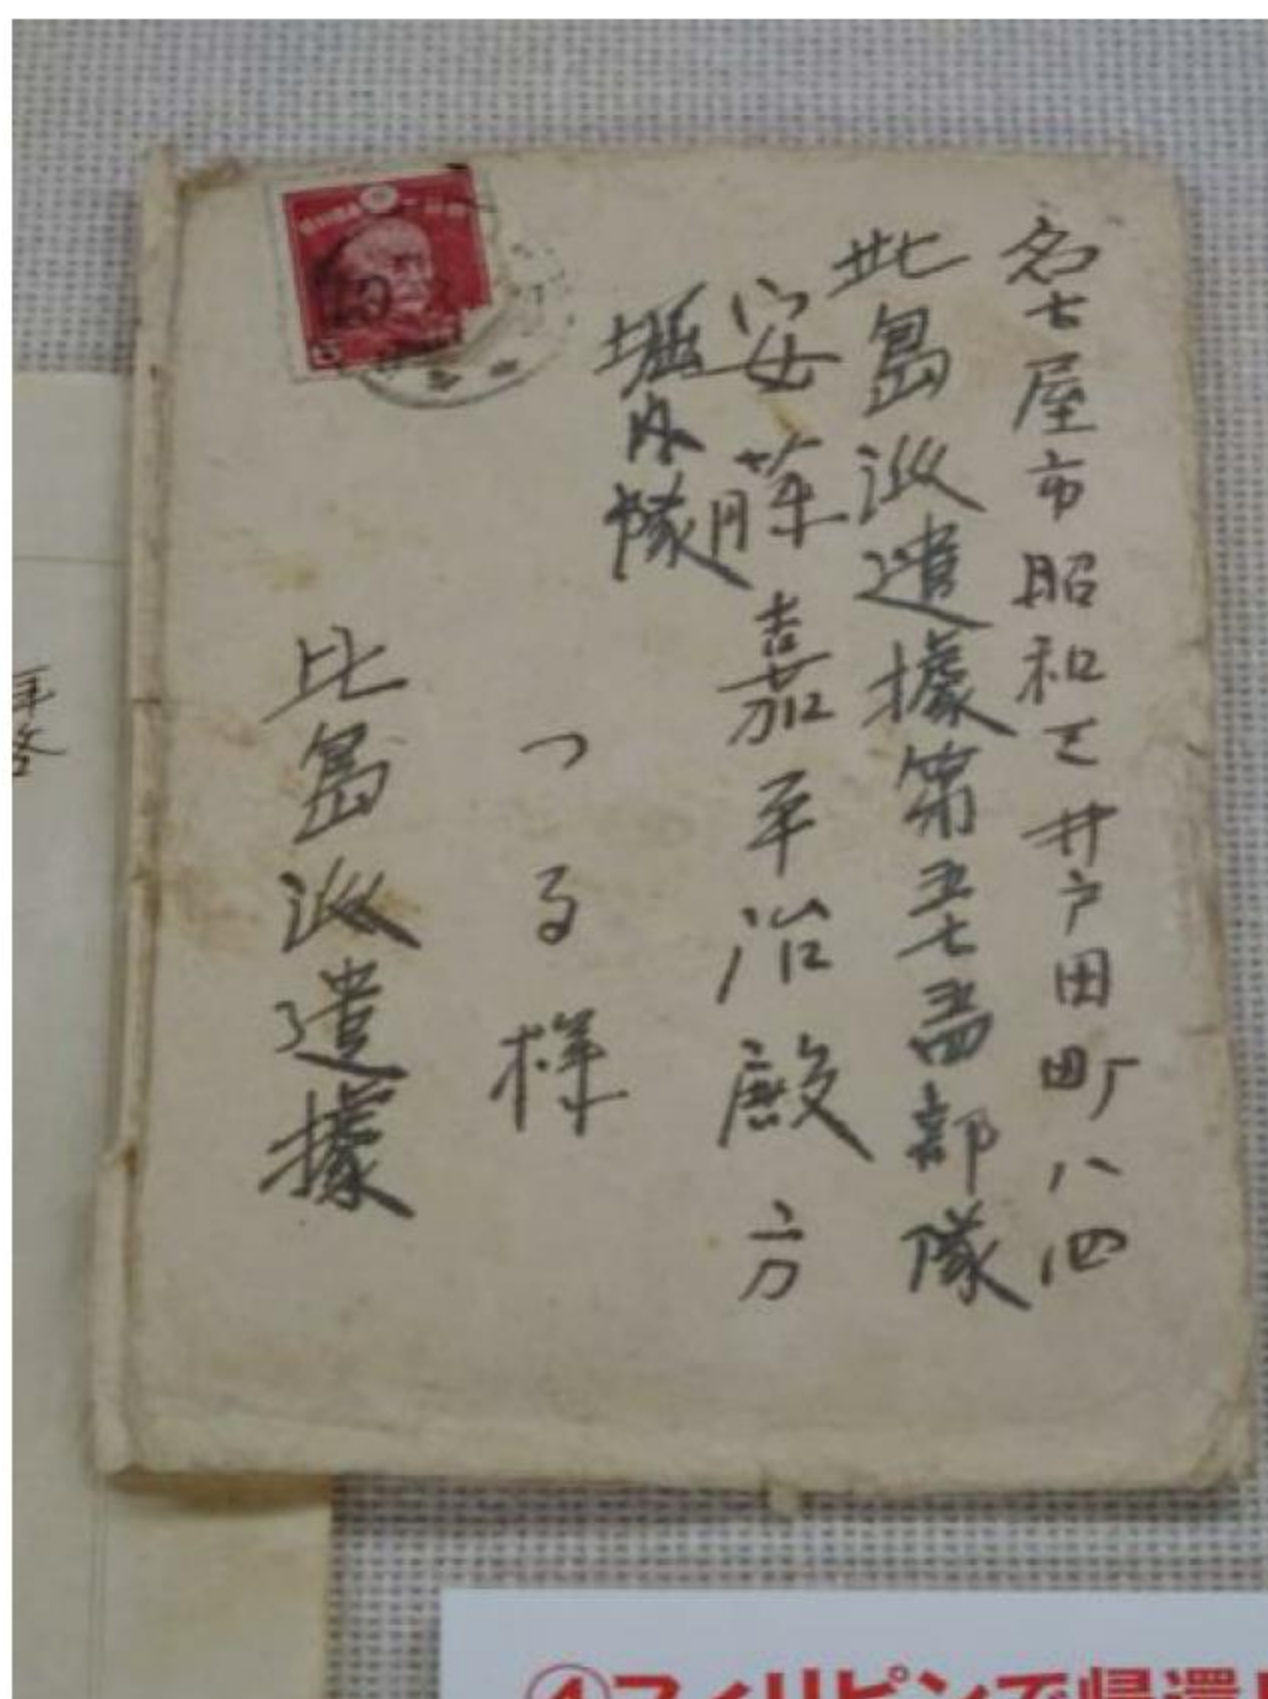 名古屋市昭和区井戸田町八四
比島派遣據第五七五四部隊
安藤嘉平治殿方
堀内隊
つる様
比島派遣據
④フィリピンで帰還